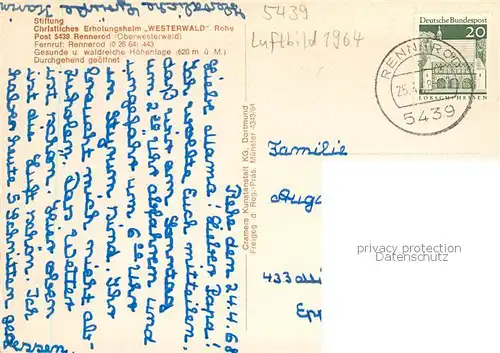 Stiftung
Christliches Erholungsheim „WESTERWALD", Rehe
Post 5439 Rennerod (Oberwesterwald)
Fernruf: Rennerod (0 26 64) 443
Gesunde u. waldreiche Höhenlage (620 m ü. M.)
Durchgehend geöffnet
5439
Luftbild 1964
Deutsche Bundespost
20
LORSCH/HESSEN
RENNEROD
5439
Cramers Kunstanstalt KG, Dortmund
Freigeg. d. Reg.-Präs. Münster 4343/64
Rehe, den 24.4.68
Liebe Mama! Lieber Papa!
Ich wollte Euch mitteilen,
daß wir am Sonntag
um 2 Uhr abfahren und
ungefähr um 6 Uhr
in sind. Ihr
braucht mich nicht ab-
zuholen. Das Wetter
ist hier oben
ist die Luft schön. Ich
habe heute 5 Schnitten geg
essen
Herzliche Grüße
Familie
433
privacy protection
www.delcampe.net